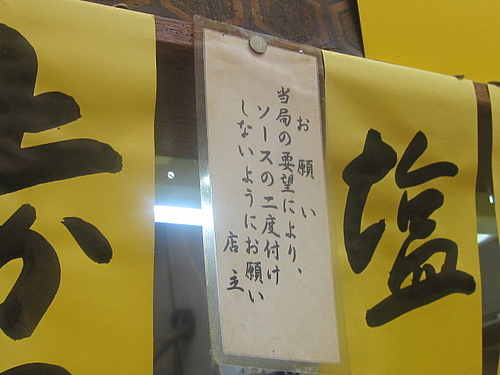 塩
お願い
当局の要望により、
ソースの二度付け
しないようにお願い
店主